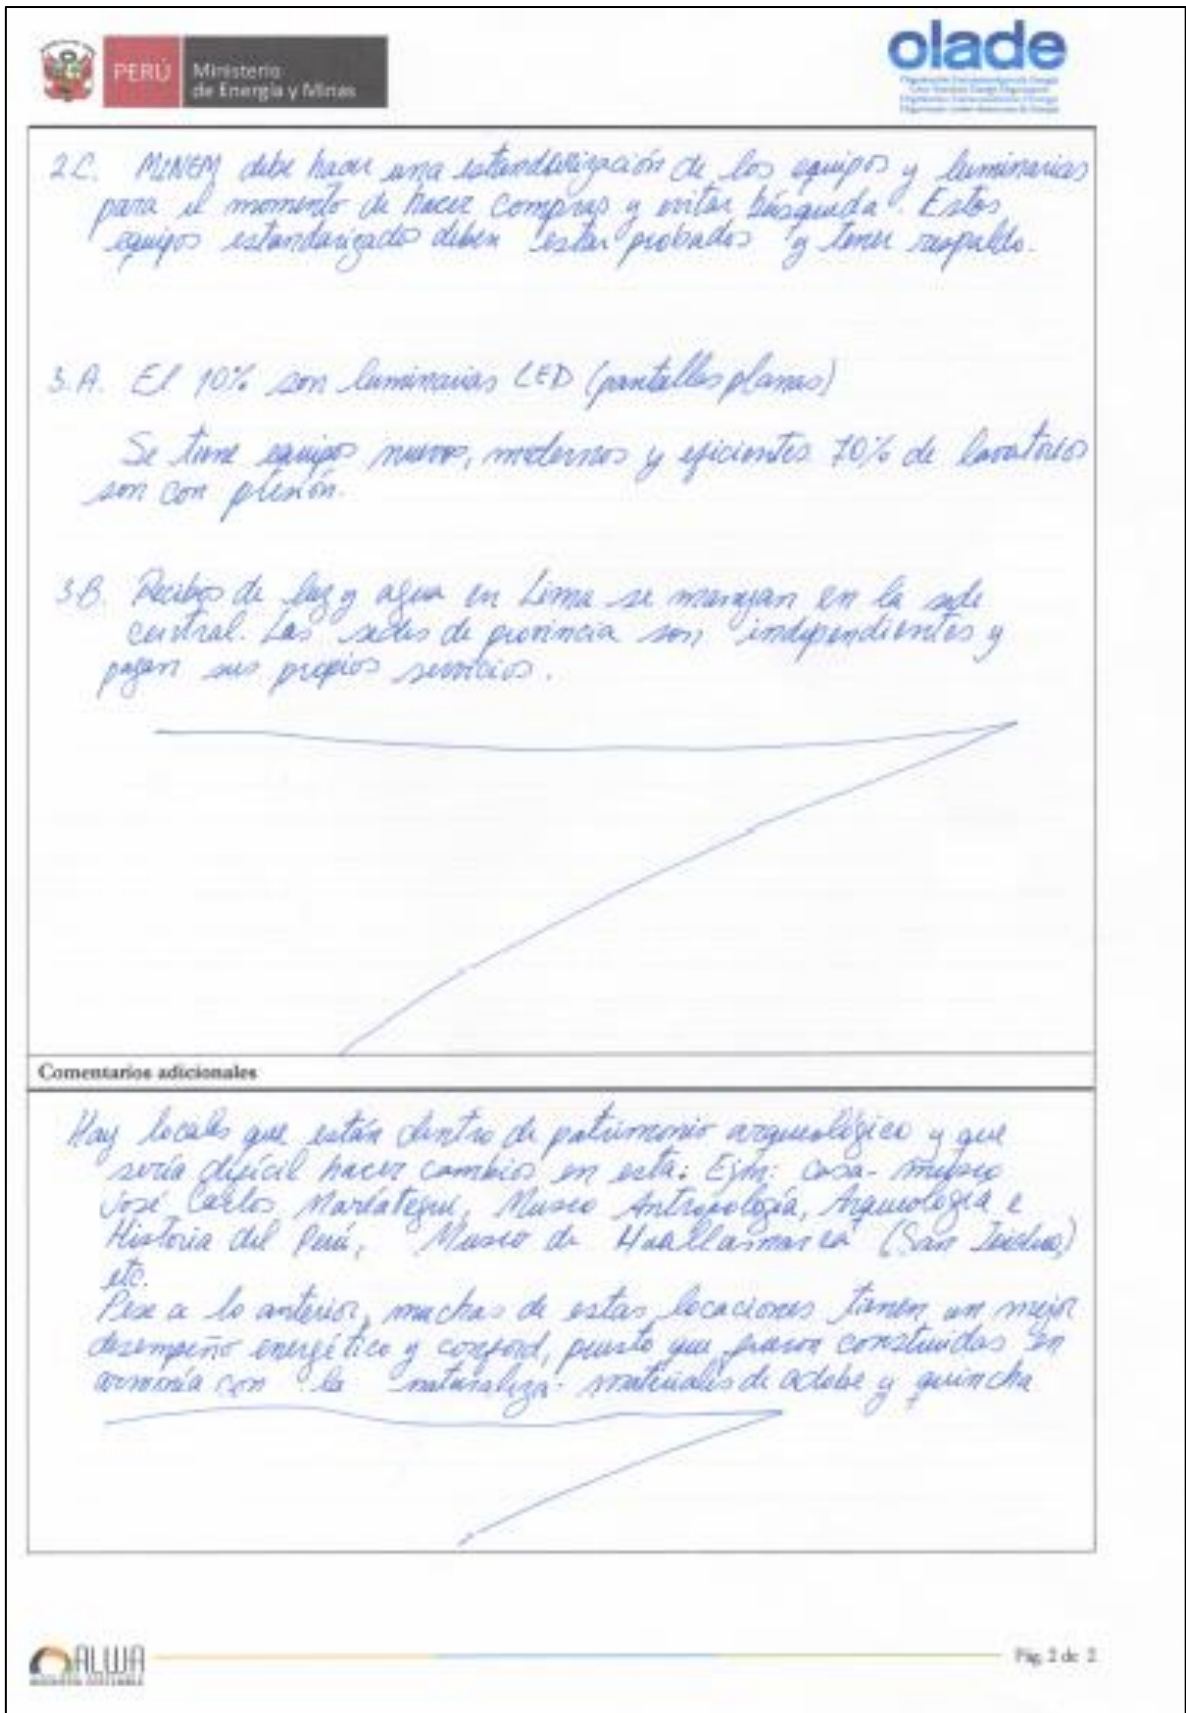 PERÚ
Ministerio
de Energía y Minas
olade
2.C. MINEM debe hacer una estandarización de los equipos y luminarias
para el momento de hacer compras y evitar búsqueda. Estos
equipos estandarizado deben estar probados y tener respaldo.
3.A. El 10% son luminarias LED (pantallas planas)
Se tiene equipos nuevos, modernos y eficientes 70% de lavatorios
son con presión.
3.B. Recibos de luz y agua en Lima se manejan en la sede
central. Las sedes de provincia son independientes y
pagan sus propios servicios.
Comentarios adicionales
Hay locales que están dentro de patrimonio arqueológico y que
sería difícil hacer cambios en esta: Ejm: casa-museo
José Carlos Mariátegui, Museo Antropología, Arqueología e
Historia del Perú, Museo de Huallamarca (San Isidro)
etc.
Pese a lo anterior, muchas de estas locaciones tienen un mejor
desempeño energético y conford, puesto que fueron construidas en
armonía con la naturaleza - materiales de adobe y quincha
ALWA
Pág. 2 de 2